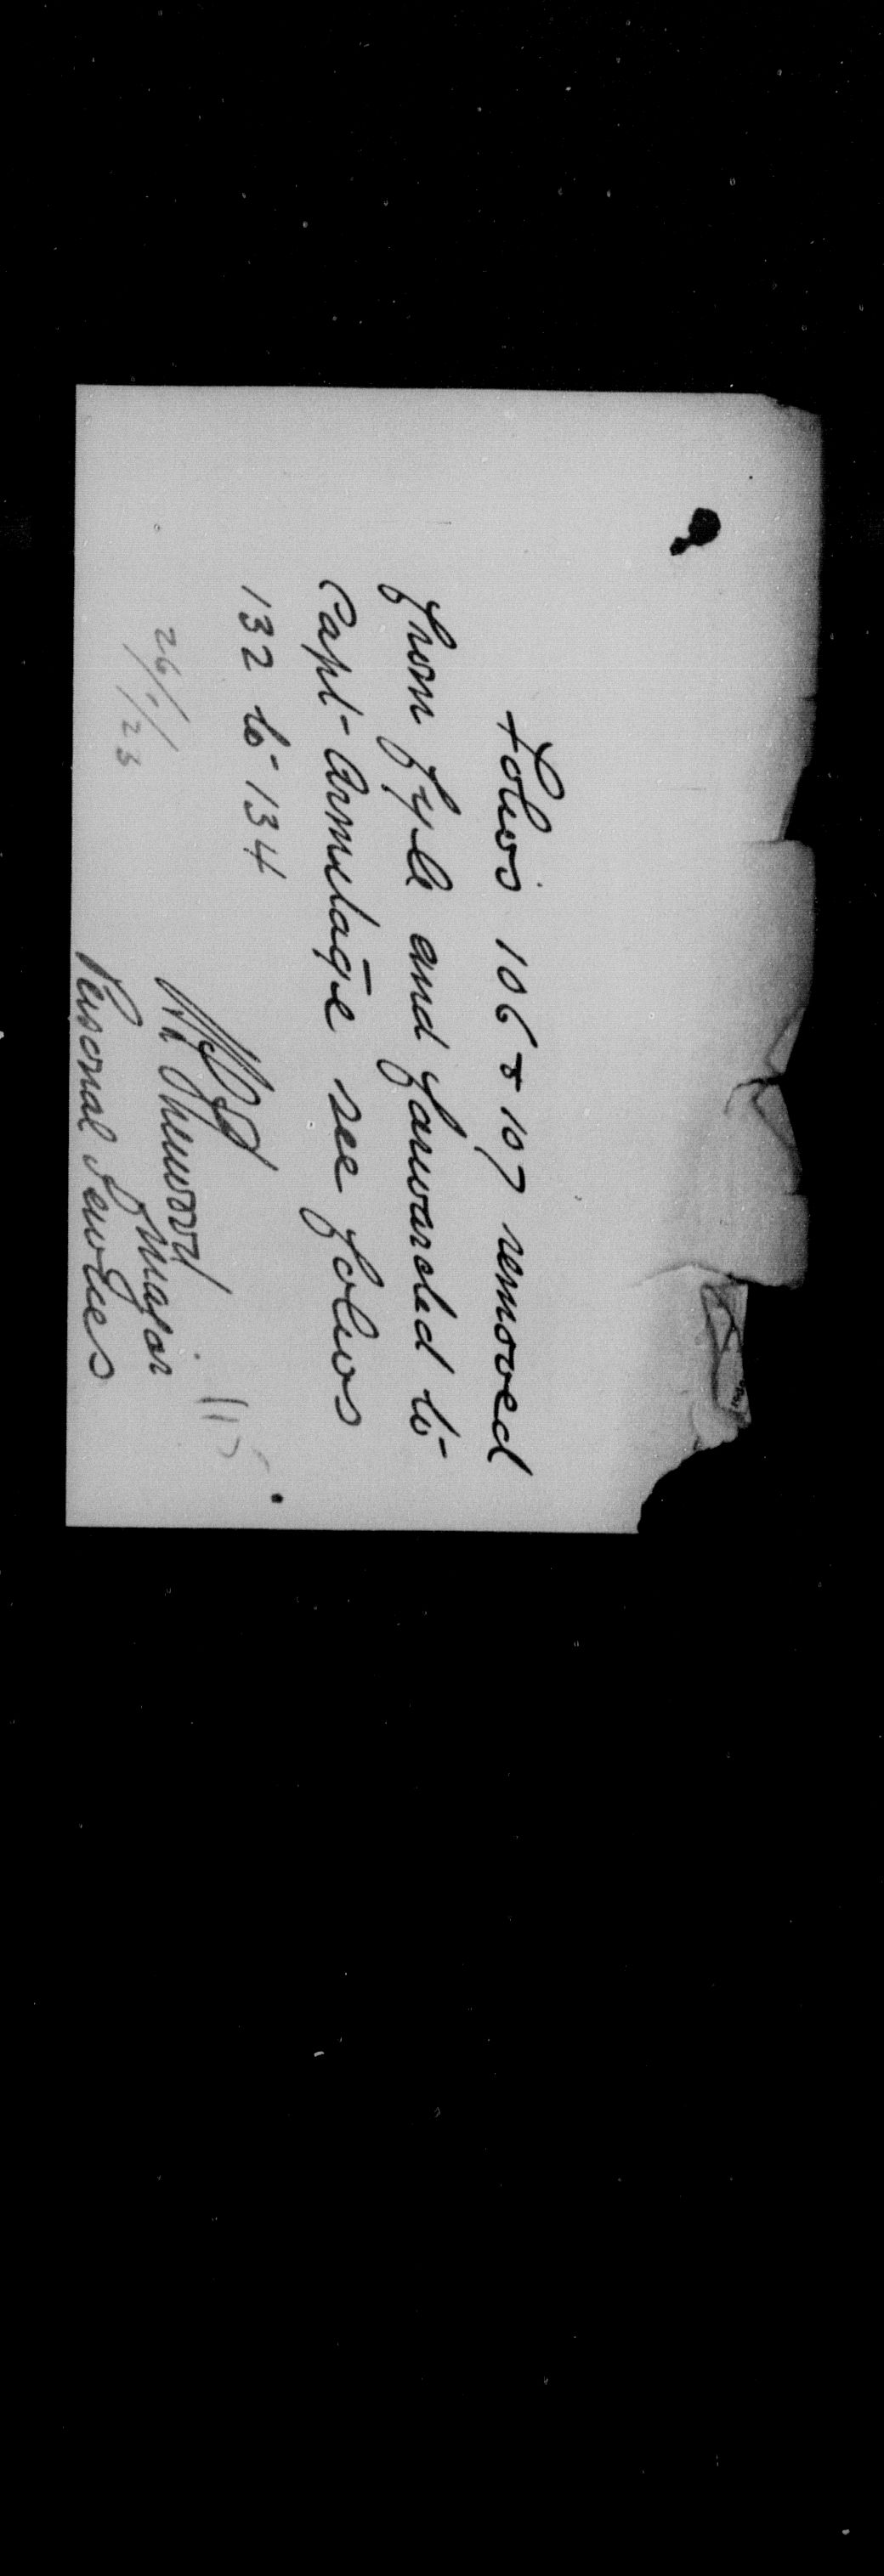 Folios 106 & 107 removed
from fyle and forwarded to
Capt- Armitage see folios
132 to 134
26/1/23
Major
Personal Services